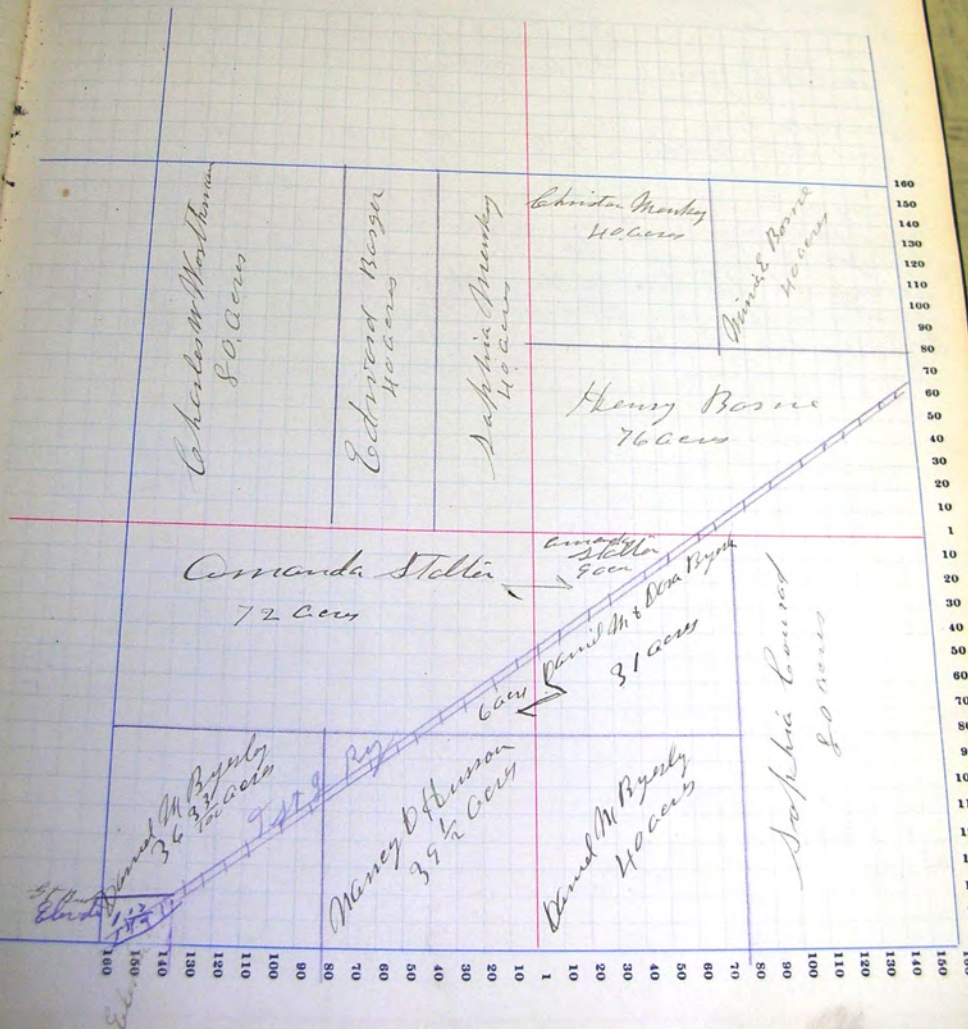 Charles W Worthman
80 acres
Edward Barger
40 acres
Sophia Menky
40 acres
Christn Menky
40 acres
Minnie E Borne
40 acres
Henry Borne
76 acres
Amanda Stalter
72 acres
Amanda
Stalter
9 acres
Daniel M & Dora Byerly
31 acres
6 acres
Sophia Conrad
80 acres
Daniel M Byerly
36 33/100 acres
Ry
Nancy D Husson
39 1/2 acres
Daniel M Byerly
40 acres
160
150
140
130
120
110
100
90
80
70
60
50
40
30
20
10
1
10
20
30
40
50
60
70
80
160 150 140 130 120 110 100 90 80 70 60 50 40 30 20 10 1 10 20 30 40 50 60 70 80 90 100 110 120 130 140 150